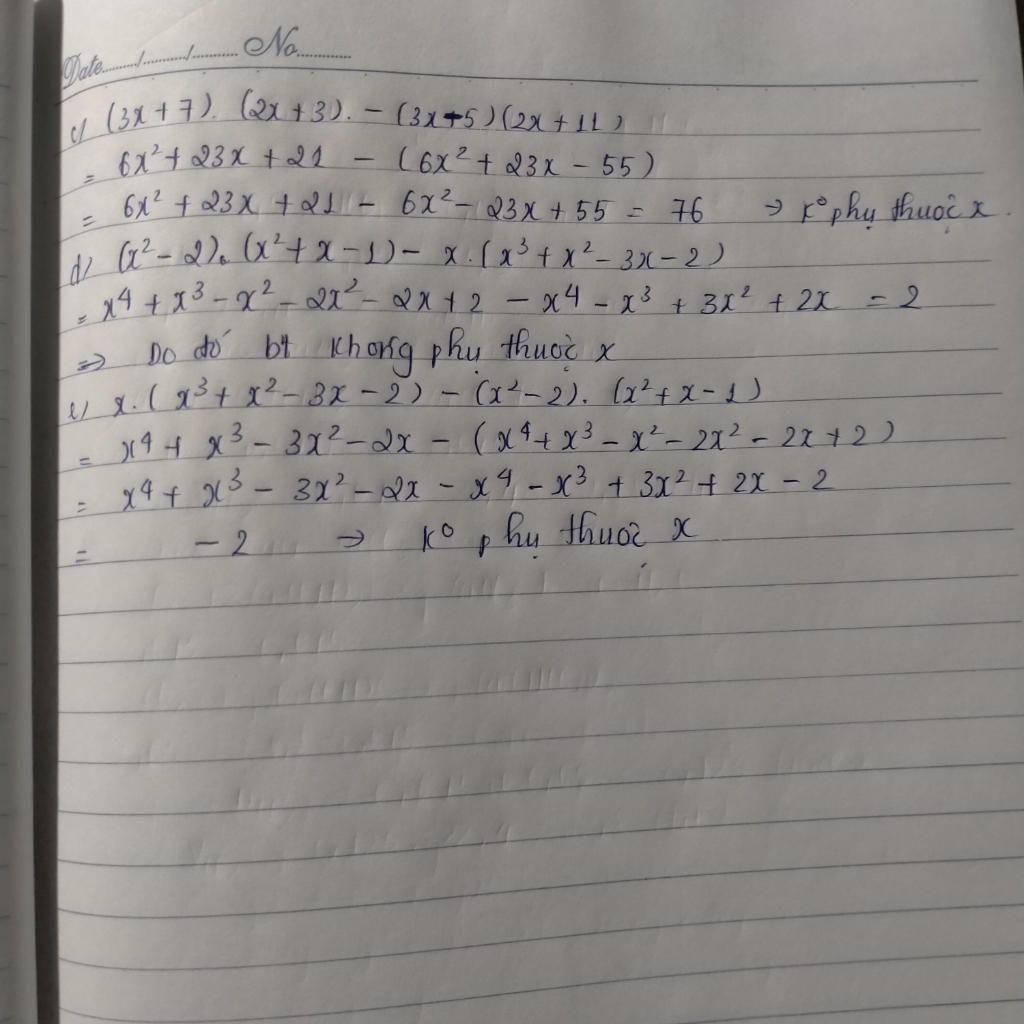 Date......../........../.......... No............
c) (3x + 7). (2x + 3). - (3x - 5)(2x + 11)
= 6x² + 23x + 21 - (6x² + 23x - 55)
= 6x² + 23x + 21 - 6x² - 23x + 55 = 76 → Kº phụ thuộc x.
d) (x² - 2). (x² + x - 1) - x.(x³ + x² - 3x - 2)
= x⁴ + x³ - x² - 2x² - 2x + 2 - x⁴ - x³ + 3x² + 2x = 2
=> Do đó bt không phụ thuộc x
e) x.(x³ + x² - 3x - 2) - (x² - 2). (x² + x - 1)
= x⁴ + x³ - 3x² - 2x - (x⁴ + x³ - x² - 2x² - 2x + 2)
= x⁴ + x³ - 3x² - 2x - x⁴ - x³ + 3x² + 2x - 2
= - 2 → Kº phụ thuộc x